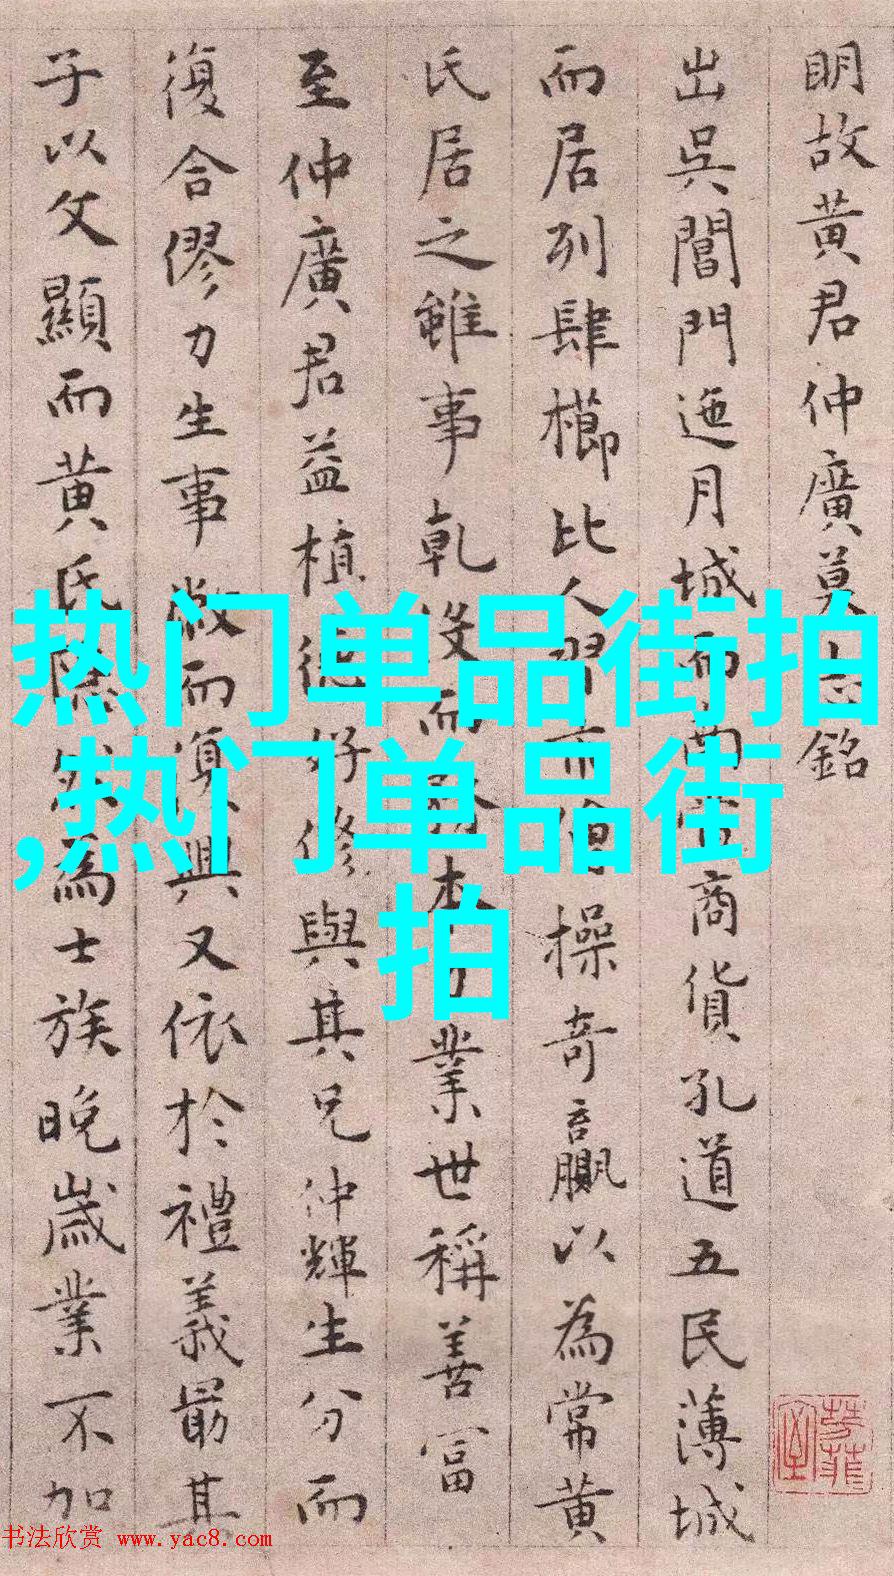 明故黄君仲廣墓志銘
出吳閶門迤月城而南商貨孔道五民薄城
而居列肆櫛比人習而操奇贏以為常黄
氏居之雖事乾没而本業世稱善富
至仲廣君益植德好修與其兄仲輝生分而
復合僇力生事微而復興又依於禮義最其
子以文顯而黄氏隱然為士族晚歲業不加
热门单品街拍
,热门单品街
拍
书法欣赏 www.yac8.com